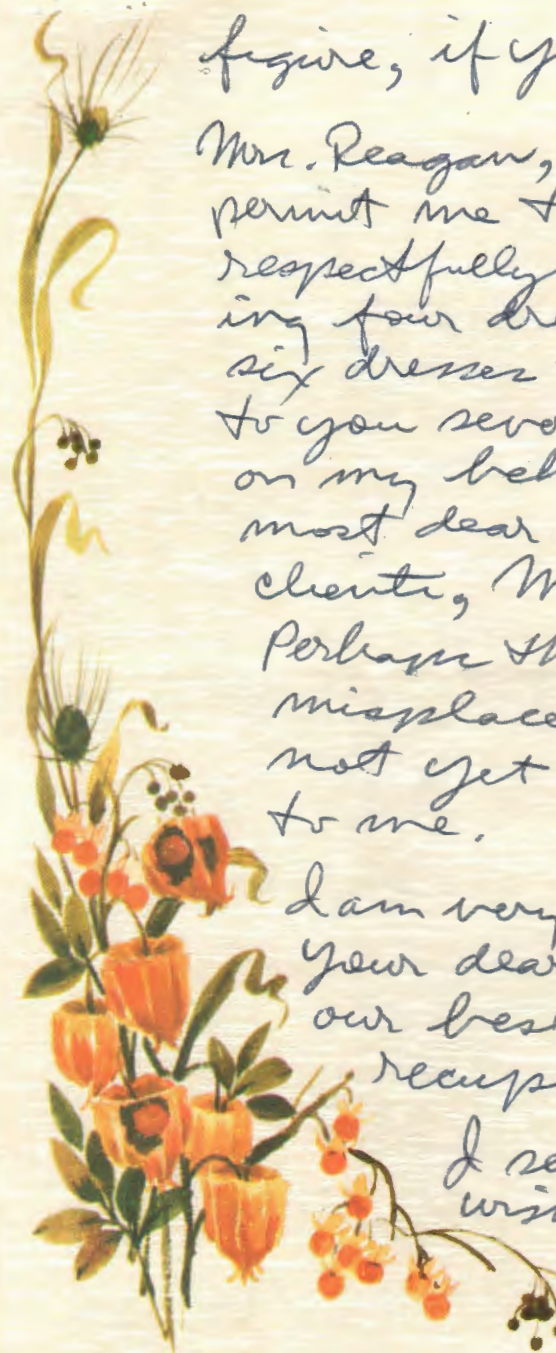 figure, if y
Mrs. Reagan,
permit me t
respectfully
ing four dre
six dresses
to you seve
on my beh
most dear
clients, M
Perhaps th
misplace
not yet
to me.
I am very
your dear
our bes
recupe
I se
wis